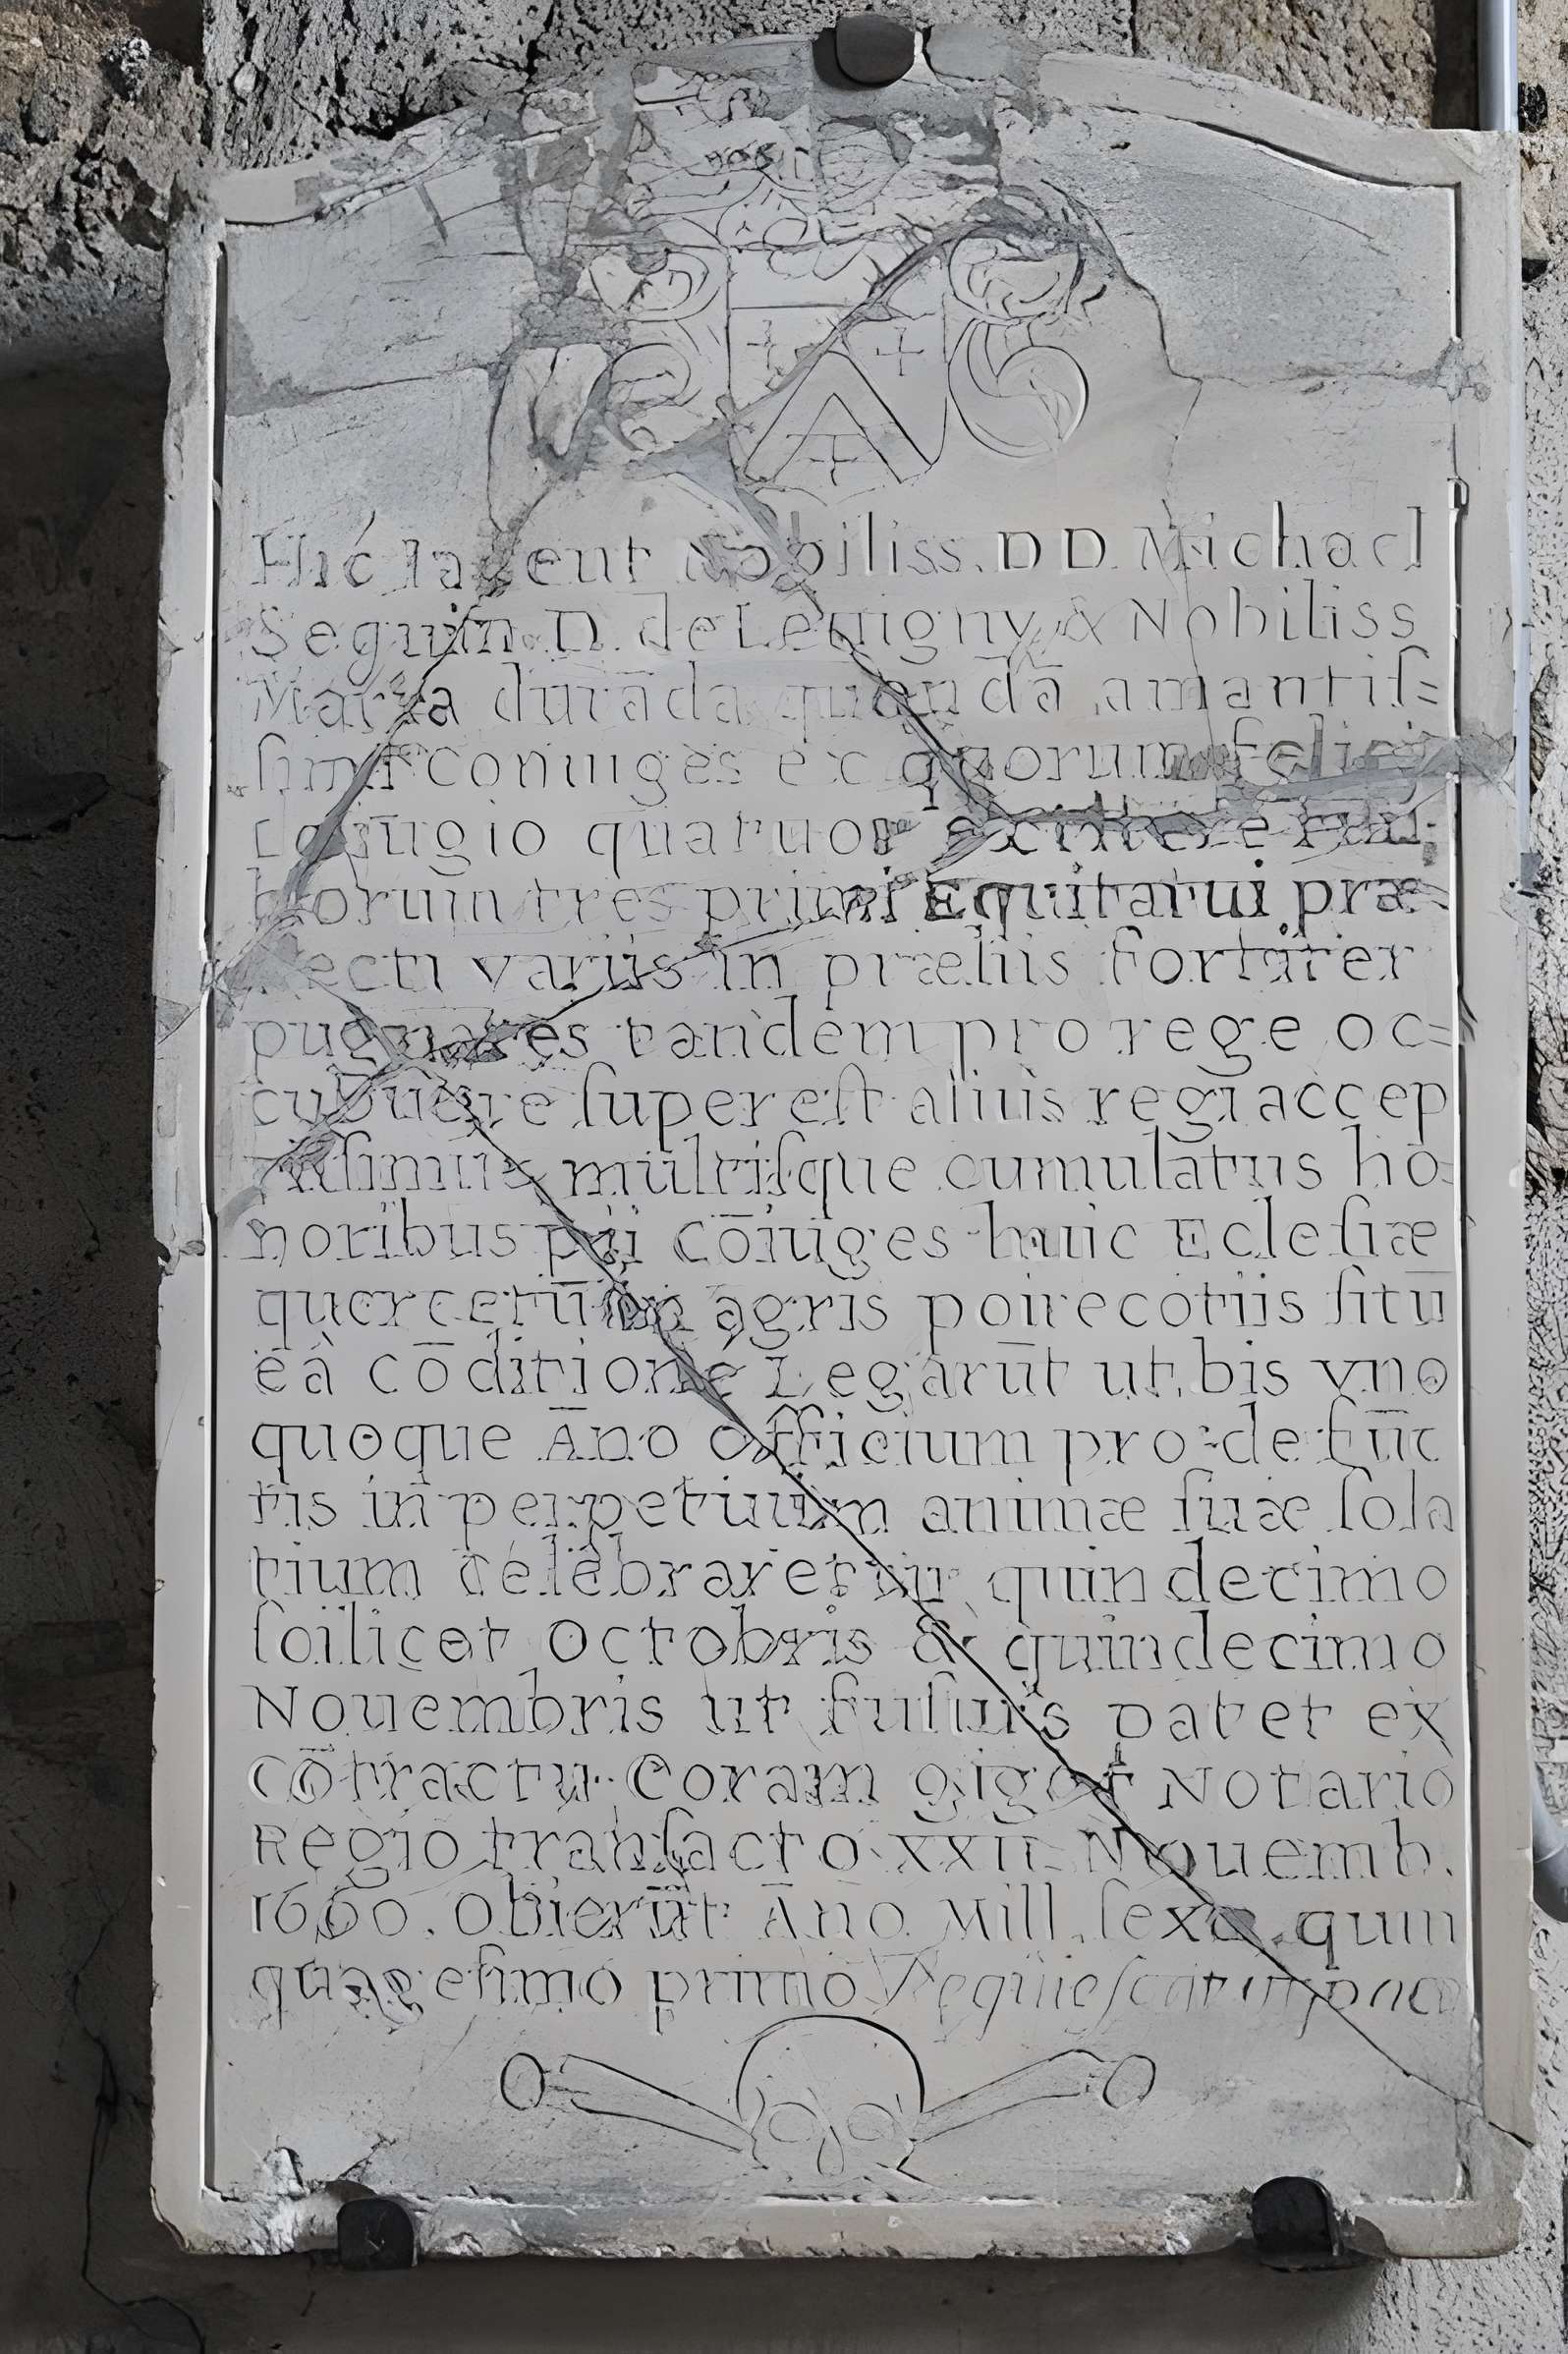 Hic Iacent Nobiliss. D D. Michael
Seguin. D. de Leuigny & Nobiliss
Maria durāda quondā amantiſ=
ſimi Coniuges ex quorum felici
coiugio quatuor
horum tres primi Equitatui præ
fecti variis in præliis fortiter
pugnātes tandem pro rege oc=
cubuere ſupereſt alius regi accep
tiſſimus multiſque cumulatus ho=
noribus pii cōiuges huic Ecleſiæ
quercetū in agris poirecotiis ſitū
eà cōditione Legarūt ut bis vno
quoque Āno officium pro defūc
tis in perpetuum animæ ſuæ ſola
tium celebraretur quindecimo
ſcilicet Octobris & quindecimo
Nouembris ut fuſius patet ex
cōtractu Coram gigot Notario
Regio tranſacto XXII Nouemb.
1660. Obierūt Āno Mill. ſexc. quin
quageſimo primo Requieſcāt in pace